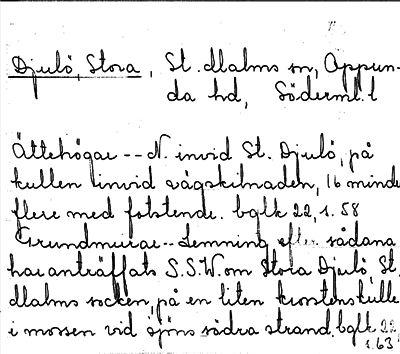 Djulö, Stora, St. Malms sn, Oppun-
da hd, Söderml. l
Ättehögar -- N. invid St. Djulö, på
kullen invid vägskilnaden, 16 minde
flere med fotstende. bglk 22, 1. 58
Grundmurar -- Lemning efter sådana
har anträffats S.S.W. om Stora Djulö, St.
Malms socken, på en liten krosstenskulle
i mossen vid sjöns södra strand. bglk 22
1.63